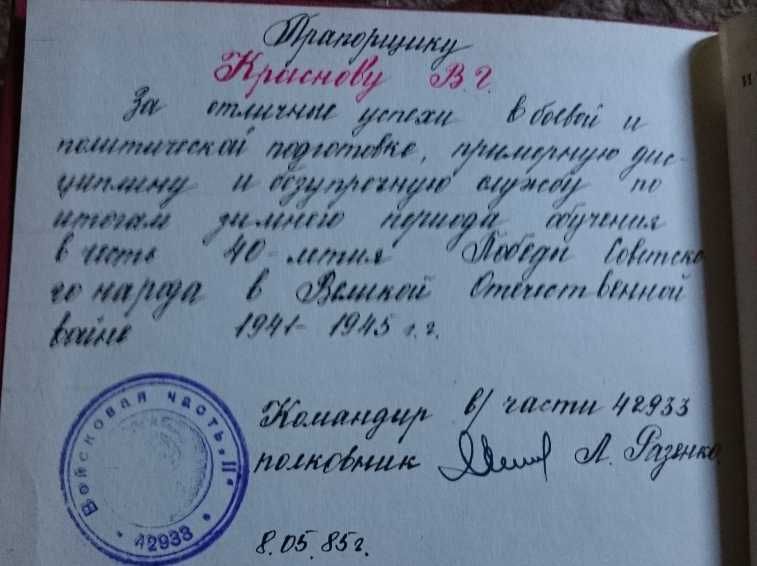 Прапорщику
Краснову В.Г.
За отличные успехи в боевой и
политической подготовке, примерную дис-
циплину и безупречную службу по
итогам зимнего периода обучения
в честь 40-летия Победы Советско
го народа в Великой Отечественной
войне 1941-1945 г.г.
Командир в/части 42933
полковник Л. Разенко
8.05.85г.
Войсковая часть „II"
42933
и